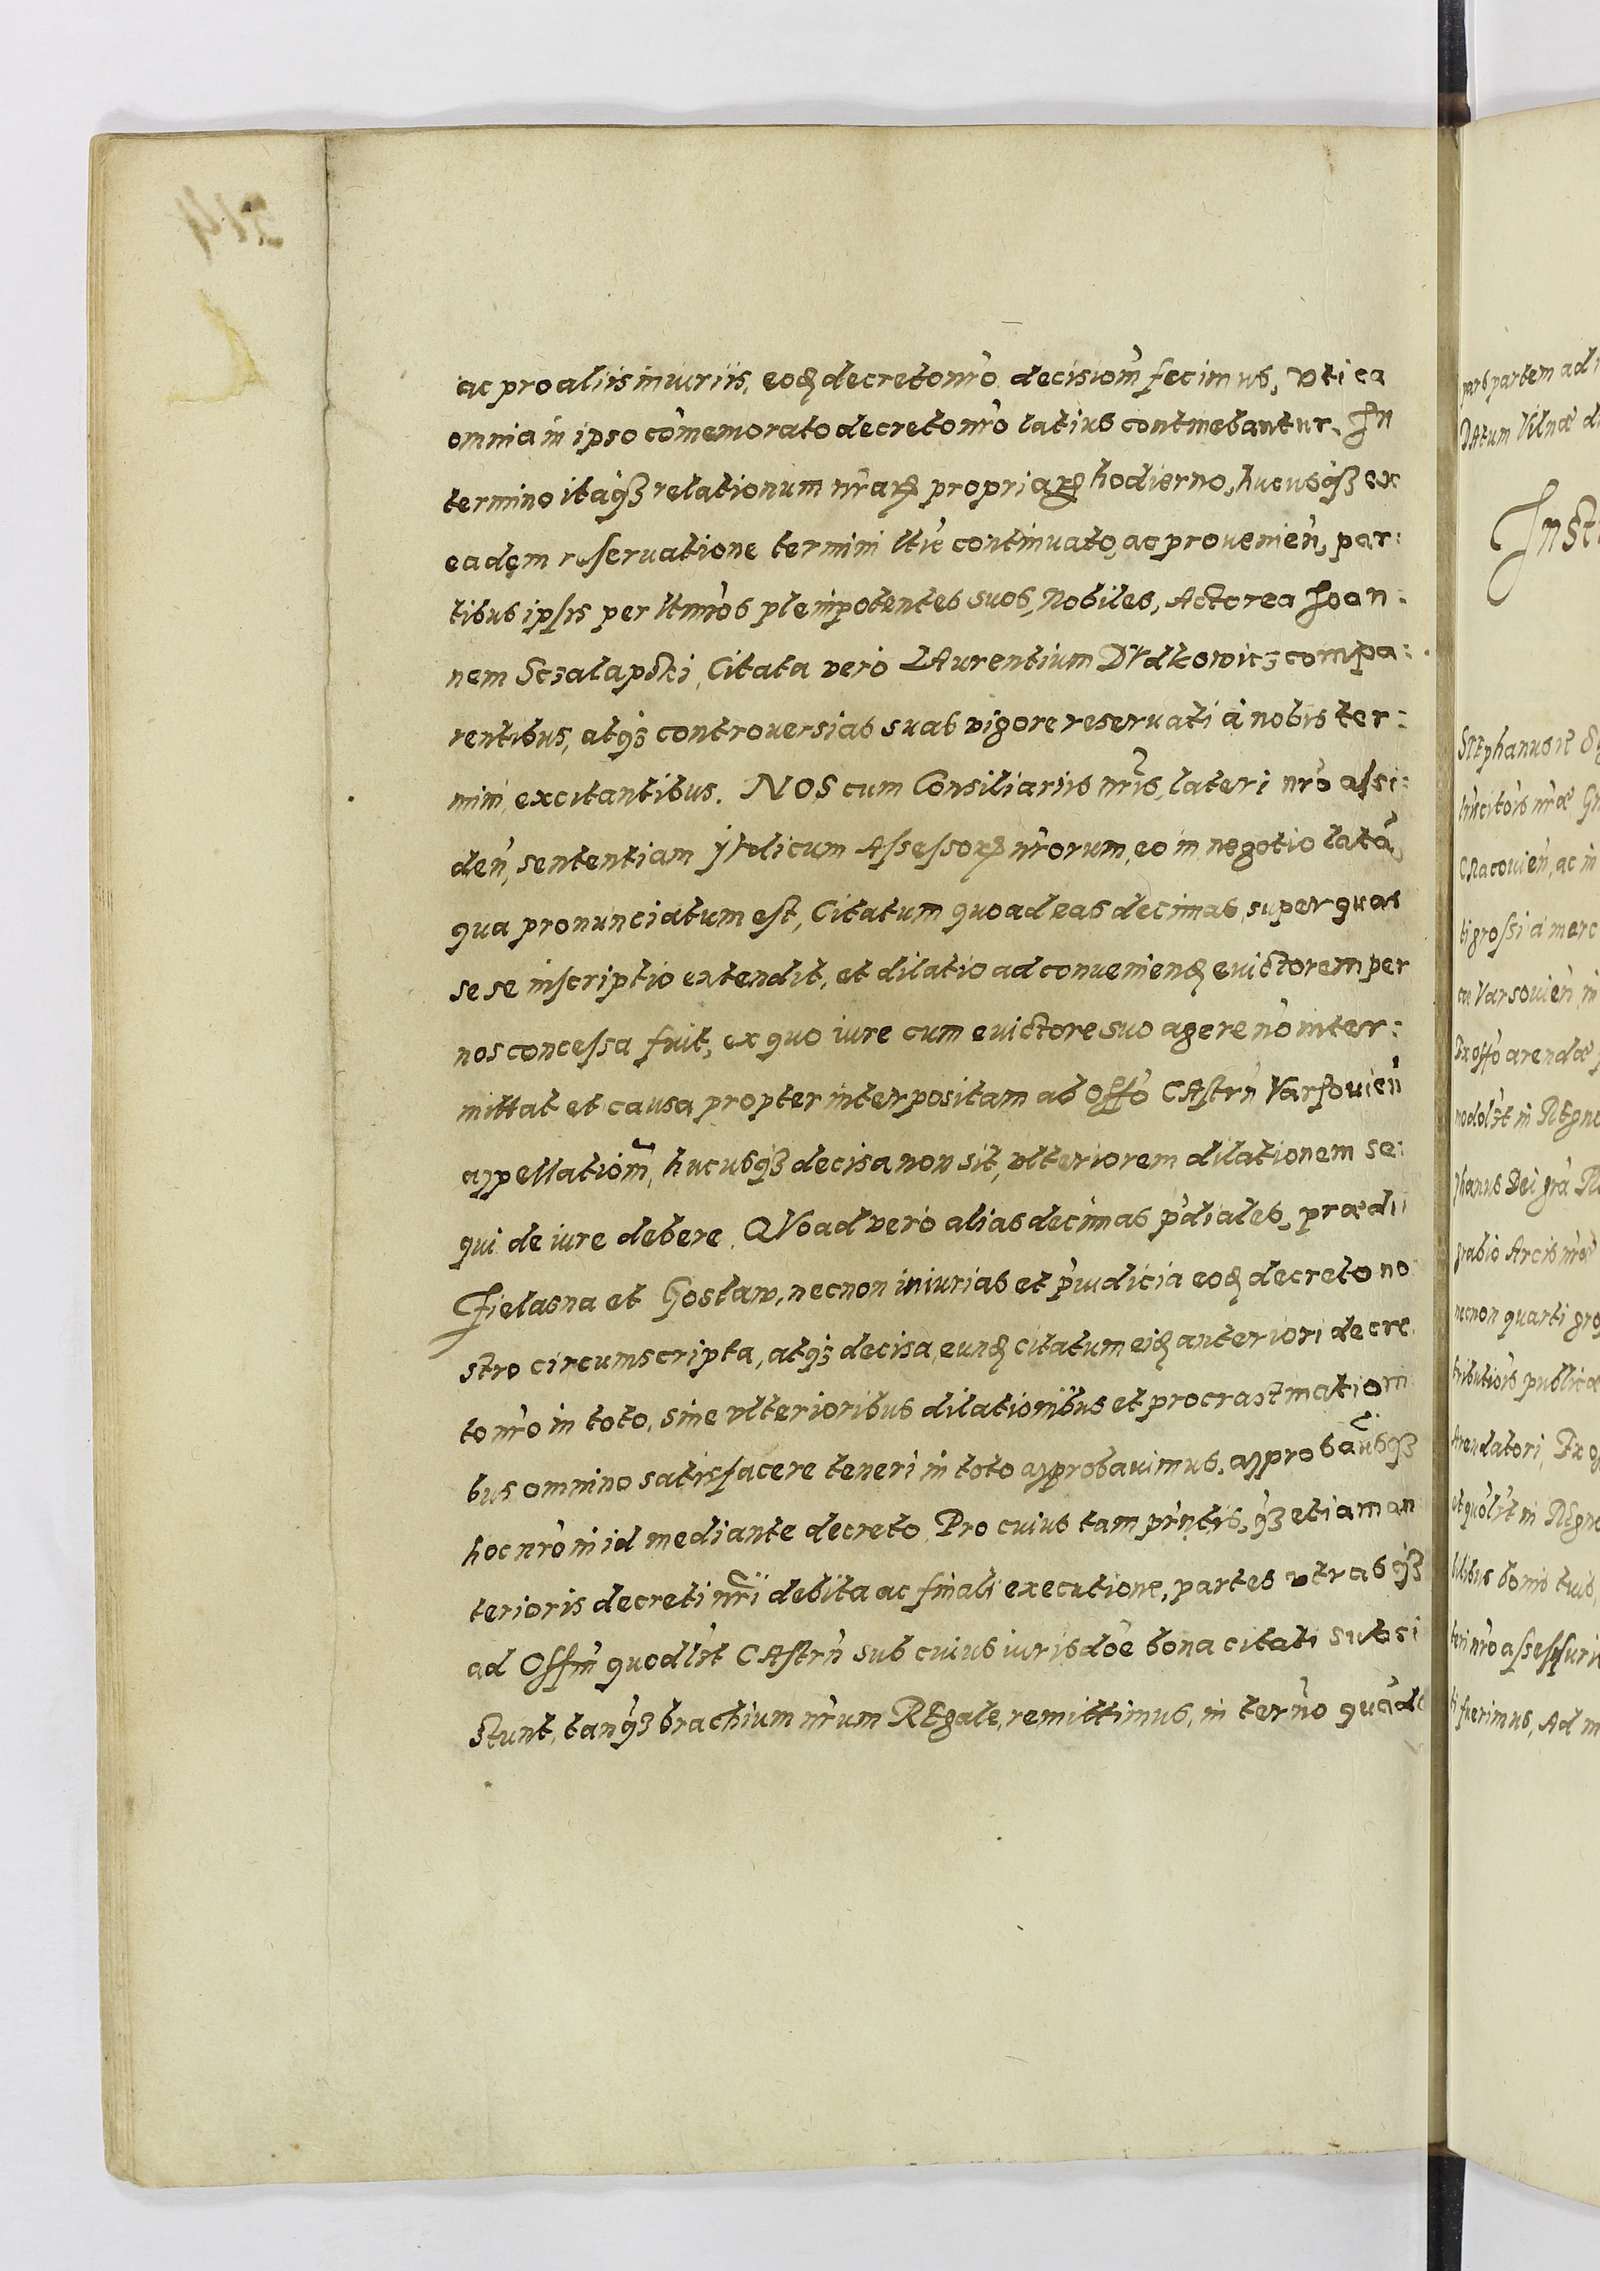 ac pro aliis iniuriis, eoꝺ decreto nr̃o decisiom̃ fecimus, vti ea
omnia in ipso com̃emorato decreto nr̃o latius continebantur. In
termino itaqꝫ relationum nr̃aꝝ propriaꝝ hodierno, hucusqꝫ ex
eadem reseruatione termini continuato, ac prouenien̉, par:
tibus ipsis per pleinpotentes suos, Nobiles, Actorea Joan:
nem Sczalapski, Citata vero LAurentium DVdkowicz compa:
rentibus, atqꝫ controuersias suas vigore reseruati à nobis ter:
mini, excitantibus. NOS cum Consiliariis nr̃is, lateri nr̃o assi:
den̉, sententiam Assessoꝝ nr̃orum, eo in negotio latã,
qua pronunciatum est, Citatum quoad eas decimas, super quas
se se inscriptio extendit, et dilatio ad conueniend̉ euictorem per
nos concessa fuit, ex quo iure cum euictore suo agere nõ inter:
mittat et causa propter interpositam ab Offõ CAstrn̉ Varsouien̉
appellatiom̃, hucusqꝫ decisa non sit, vlteriorem dilationem se:
qui de iure debere. QVoad vero alias decimas p̉diales, prædii
Fielasna et Goslaw, necnon iniurias et p̉iudicia eoꝺ decreto no
stro circumscripta, atqꝫ decisa, eunꝺ citatum eiꝺ anteriori decre
to nr̃o in toto, sine vlterioribus dilationibus et procrastinationi
bus omnino satisfacere teneri in toto approbauimus, approbam̃usqꝫ
hoc nr̃o in id mediante decreto. Pro cuius tam pr̃ntis, qꝫ etiam an
terioris decreti nr̃i debita ac finali executione, partes vtrasqꝫ
ad Offm̃ quodl̉t CAstrn̉ sub cuius iurisdõe bona citati subsi
stunt, tanqꝫ brachium nr̃um REgale, remittimus, in terñno
pars partem ad
DAtum Vilnæ
InSt
STEphanus
CRacouien̉, ac in
ti grossi à merc
Varsouien̉ in
Ex offõ arendæ
in REgno
phanus Dei grã
Arcis nr̃æ
necnon quarti gro
tributiõis publicæ
Arendatori, Ex
in REgno
tuis,
nr̃o assessur
fuerimus, Ad m